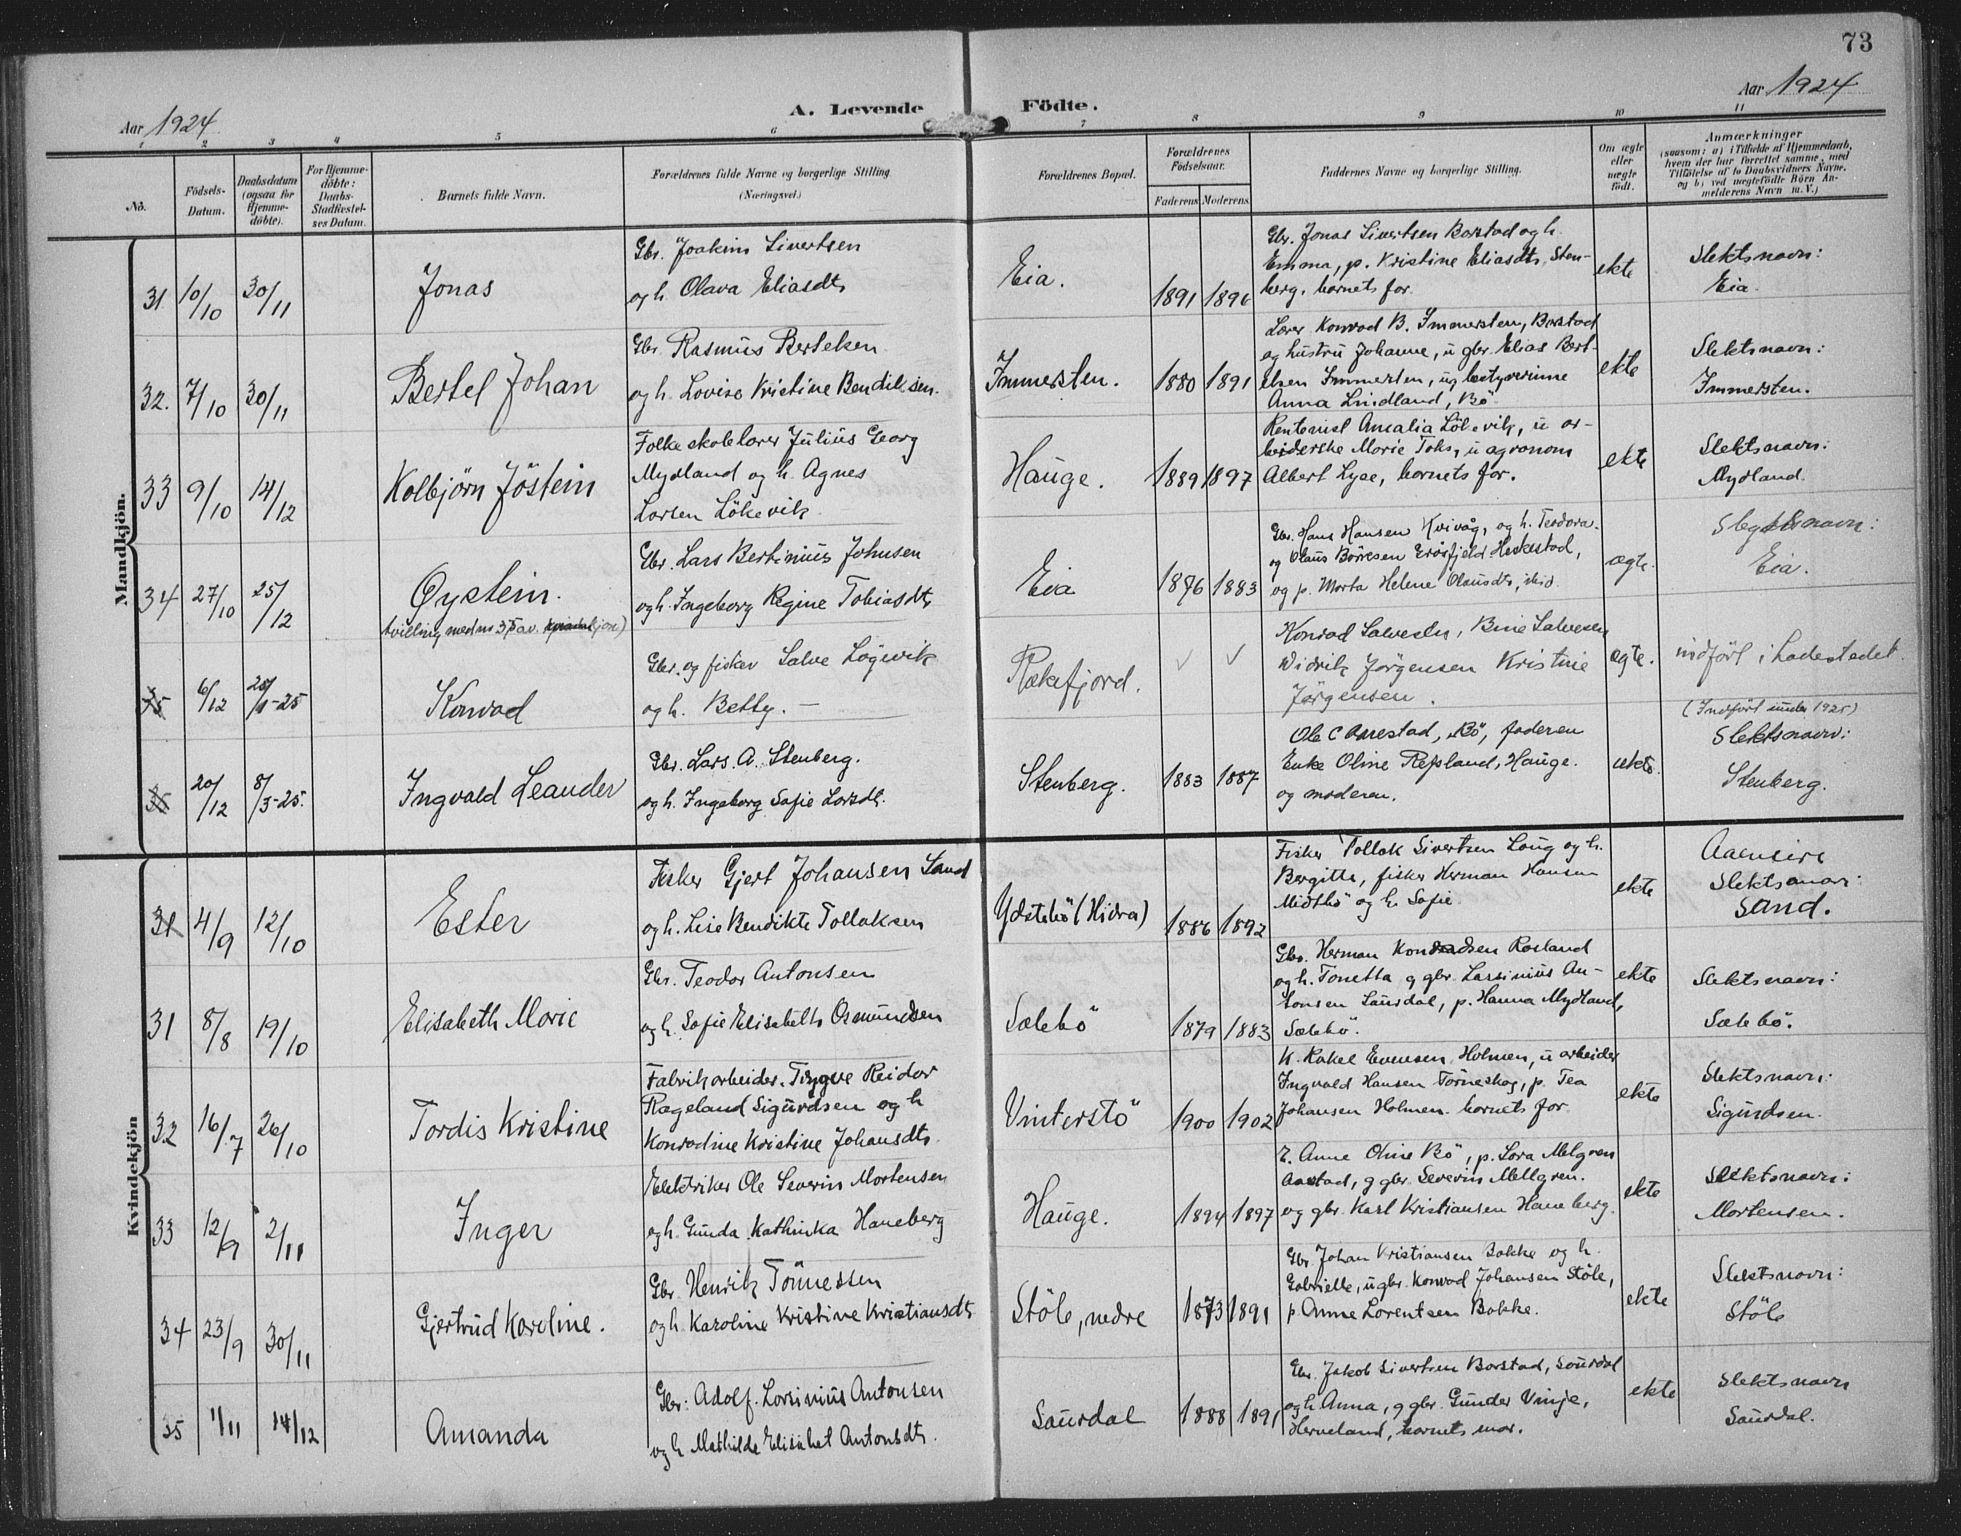 73
Aar 1924
A. Levende Födte.
Aar 1924
1 2 3 4 5 6 7 8 9 10 11
No.
Födsels-Datum.
Daabsdatum (ogsaa for Hjemme-döbte).
For Hjemme-döbte: Daabs-Stadfæstel-ses Datum.
Barnets fulde Navn.
Forældrenes fulde Navne og borgerlige Stilling
(Næringsvei.)
Forældrenes Bopæl.
Forældrenes Födselsaar.
Faderens Moderens
Faddernes Navne og borgerlige Stilling.
Om ægte eller uægte födt.
Anmærkninger
(saasom: a) i Tilfælde af Hjemmedaab,
hvem der har forrettet samme, med
Tilföielse af to Daabsvidners Navne,
og b) ved uægtefödte Börn An-
melderens Navn m. V.)
Mandkjön.
31 10/10 30/11
Jonas
Gbr. Joakim Sivertsen
og h. Olava Eliasdt.
Eia.
1891 1896
Gbr. Jonas Sivertsen Barstad og h.
Emma, p. Kristine Eliasdt. Sten-
berg, barnets far.
ekte
Slektsnavn:
Eia.
32. 7/10 30/11
Bertel Johan
Gbr. Rasmus Bertelsen
og h. Lovise Kristine Bendiksen.
Immersten.
1880 1891
Lærer Konrad B. Immersten, Barstad
og hustru Johanne, u gbr. Elias Bert-
elsen Immersten, ug bestyrerinne
Anna Lindland, Bö.
ekte
Slektsnavn:
Immersten.
33 9/10 14/12
Kolbjörn Jöstein
Folkeskolelærer Julius Georg
Mydland og h. Agnes
Larsen Lökevik
Hauge.
1889 1897
Rentenist Amalia Lökevik, u ar-
beiderske Marie Toks, u agronom
Albert Lyse, barnets far.
ekte
Slektsnavn:
Mydland.
34 27/10 25/12
Øystein.
tvilling med nr 35 av kvindekjön)
Gbr. Lars Bertinius Johnsen
og h. Ingeborg Regine Tobiasdt.
Eia
1876 1883
Gbr. Hans Hansen Kvivåg, og h. Teodora.
og Olaus Börresen Eräsfjeld Heskestad,
og p. Marta Helene Olausdt. ibid.
ægte.
Slegtsnavn:
Eia.
35 6/12 25/1-25
Konrad
Gbr. og fisker Salve Lögevik
og h. Betty. –
Rækefjord.
✓ ✓
Konrad Salvesen, Bine Salvesen
Didrik Jörgensen Kristine
Jörgensen.
ægte.
indfört i Ladestadet
35 20/12 8/3-25.
Ingvald Leander
Gbr. Lars A. Stenberg.
og h. Ingeborg Sofie Larsdt.
Stenberg.
1883 1887
Ole C Aarestad, Bö, faderen
Enke Oline Refsland, Hauge.
og moderen.
ekte.
(Indfört under 1925)
Slektsnavn:
Stenberg.
Kvindekjön
31 4/9 12/10
Ester
Fisker Gjert Johansen Sand
og h. Lise Bendikte Tollaksen
Ydstebö (Hidra)
1886 1892
Fisker Tollak Sivertsen Loug og h.
Bergitte, fisker Herman Hansen
Midtbö og h. Sofie.
ekte
Aaensire
Slektsnavn:
Sand.
31 8/8 19/10
Elisabeth Marie
Gbr. Teodor Antonsen
og h. Sofie Elisabeth Osmundsen
Sælebö
1879 1883
Gbr. Herman Konradsen Rosland
og h. Tonetta g gbr. Larsinius An-
tonsen Saurdal, p. Hanna Mydland,
Sælebö.
ekte
Slektsnavn:
Sælebö.
32 16/7 26/10
Tordis Kristine
Fabrikarbeider. Trygve Reidar
Rægeland Sigurdsen og h
Konradine Kristine Johansdt.
Vinterstö
1900 1902
K. Rakel Evensen Holmen, u arbeider
Ingvald Hansen Törneskog, p. Tea
Johansen Holmen. barnets far
ekte
Slektsnavn:
Sigurdsen.
33 12/9 2/11
Inger
Elektriker Ole Severin Mortensen
og h. Gunda Kathinka Haneberg
Hauge.
1894 1897
E. Anne Oline Bö, p. Lava Melgren
Aarstad, g gbr. Severin Mellgren.
og gbr. Karl Kristiansen Haneberg.
ekte
Slektsnavn:
Mortensen.
34 23/9 30/11
Gjertrud Karoline.
Gbr. Henrik Tönnessen
og h. Karoline Kristine Kristiansdt.
Stöle, nedre
1873 1891
Gbr. Johan Kristiansen Bakke og h.
Gabrielle, u gbr. Konrad Johansen Stöle,
p. Anne Lorentsen Bakke.
ekte
Slektsnavn:
Stöle
35 1/11 14/12
Amanda
Gbr: Adolf Larsinius Antonsen
og h. Mathilde Elisabet Antonsdt.
Saurdal
1888 1891
Gbr. Jakob Sivertsen Barstad, Saurdal
og h. Anna, g gbr. Gunder Vinje,
Herveland, barnets mor.
ekte
Slektsnavn
Saurdal.